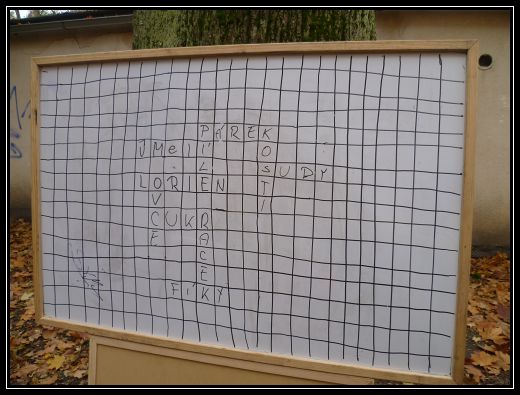 PÁREK
JMeLÍ
SUDY
LORIEN
CUKR
FÍKY
PÍLE
KOSTI
OVCE
RACEK